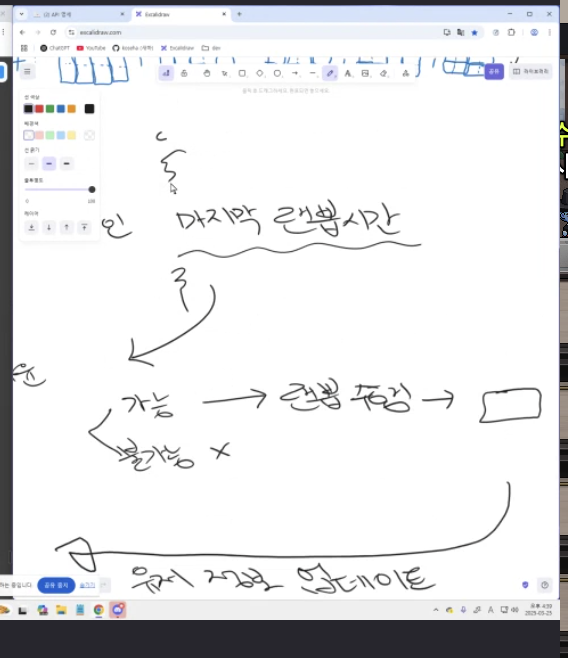 UI API 명세
Excalidraw
excalidraw.com
ChatGPT
YouTube
Excalidraw
dev
공유
라이브러리
선 색상
배경색
선 굵기
불투명도
0
100
레이어
인 마지막 랜뽑시간
가능 → 랜뽑 →
불가능 ×
유저 업데이트
공유 중지
숨기기
오후 4:59
2025-03-25